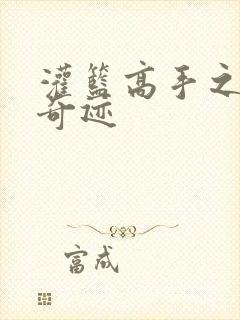 灌篮高手之
奇迹
富成